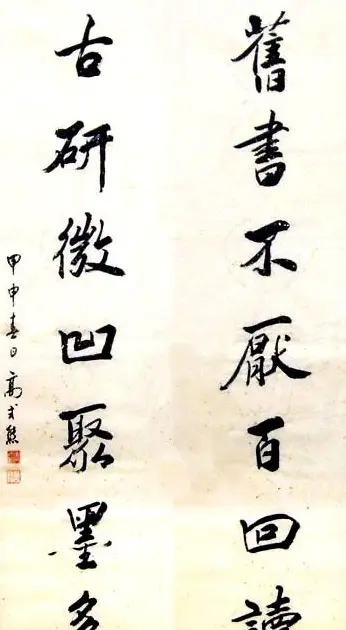 舊書不厭百回讀
古研微凹聚墨多
甲申春日高式熊